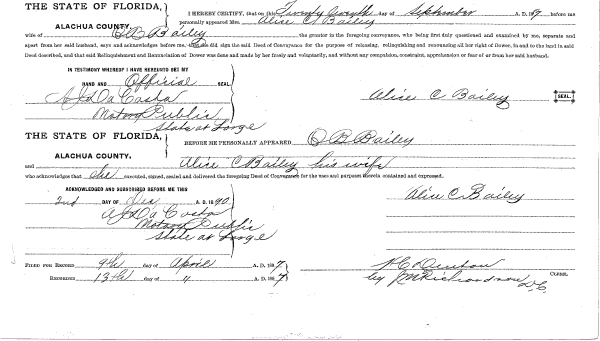 THE STATE OF FLORIDA,
ALACHUA COUNTY.
I HEREBY CERTIFY, that on this Twenty day of September A. D. 189 before me
personally appeared Mrs. Alice C. Bailey
wife of O B Bailey the grantor in the foregoing conveyance, who being first duly questioned and examined by me, separate and
apart from her said husband, says and acknowledges before me, that she did sign the said Deed of Conveyance for the purpose of releasing, relinquishing and renouncing all her right of Dower, in and to the land in said
Deed described, and that said Relinquishment and Renunciation of Dower was done and made by her freely and voluntarily, and without any compulsion, constraint, apprehension or fear of or from her said husband.
IN TESTIMONY WHEREOF I HAVE HEREUNTO SET MY
HAND AND Official SEAL
A J Da Costa
Notary Public
State at Large
Alice C Bailey SEAL.
THE STATE OF FLORIDA,
ALACHUA COUNTY.
BEFORE ME PERSONALLY APPEARED O B Bailey
and Alice C Bailey his wife
who acknowledges that she executed, signed, sealed and delivered the foregoing Deed of Conveyance for the uses and purposes therein contained and expressed.
ACKNOWLEDGED AND SUBSCRIBED BEFORE ME THIS
2nd DAY OF A. D. 1890
A J Da Costa
Notary Public
State at Large
Alice C. Bailey
FILED FOR RECORD 9th day of April A. D. 1897
RECORDED 13th day of " A. D. 1897
H C Denton CLERK.
by J M Richardson D.C.